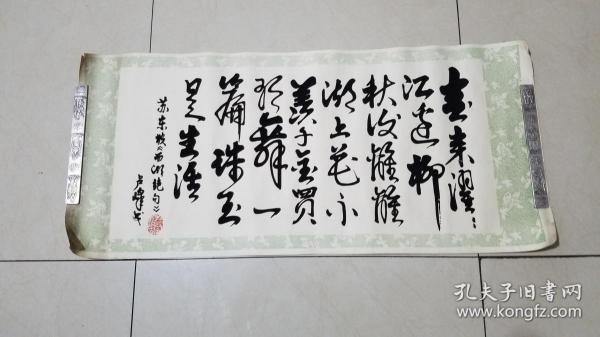 春来濯濯
江边柳
秋后离离
湖上花不
羡千金买
歌舞一
篇珠玉
是生涯
苏东坡《西湖绝句》
卢峰书
孔夫子旧书网
www.kongfz.com